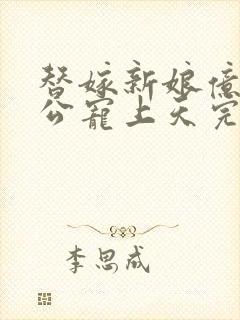 替嫁新娘億
公寵上天完
李思成